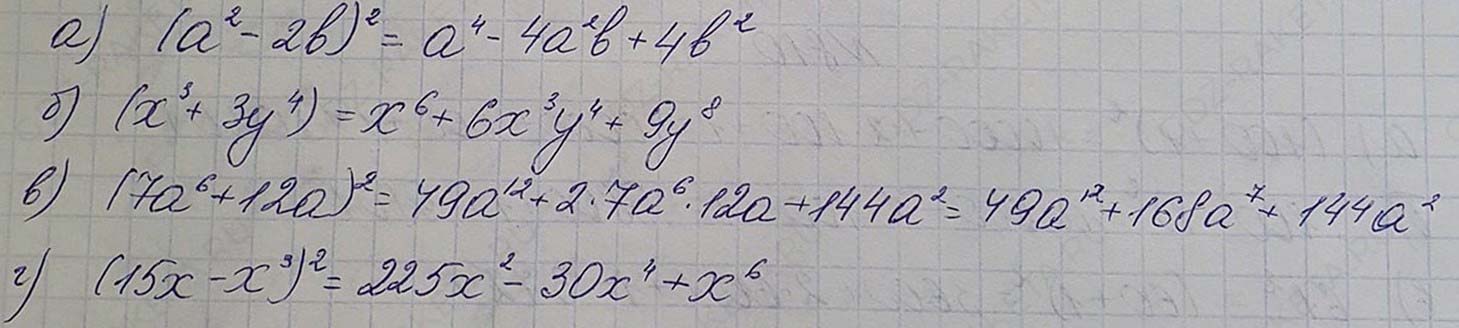 а) (a² - 2b)² = a⁴ - 4a²b + 4b²
б) (x³ + 3y⁴) = x⁶ + 6x³y⁴ + 9y⁸
в) (7a⁶ + 12a)² = 49a¹² + 2·7a⁶·12a + 144a² = 49a¹² + 168a⁷ + 144a²
г) (15x - x³)² = 225x² - 30x⁴ + x⁶